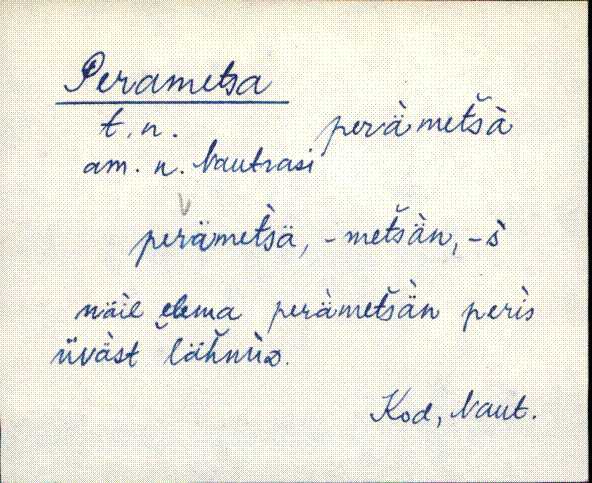 Perametsa
t. n. perämetsä
am. n. Nautrasi
perämetsä, -metsän, -s
näil elema perämetsän peris
üväst lähnüɒ.
Kod, Naut.